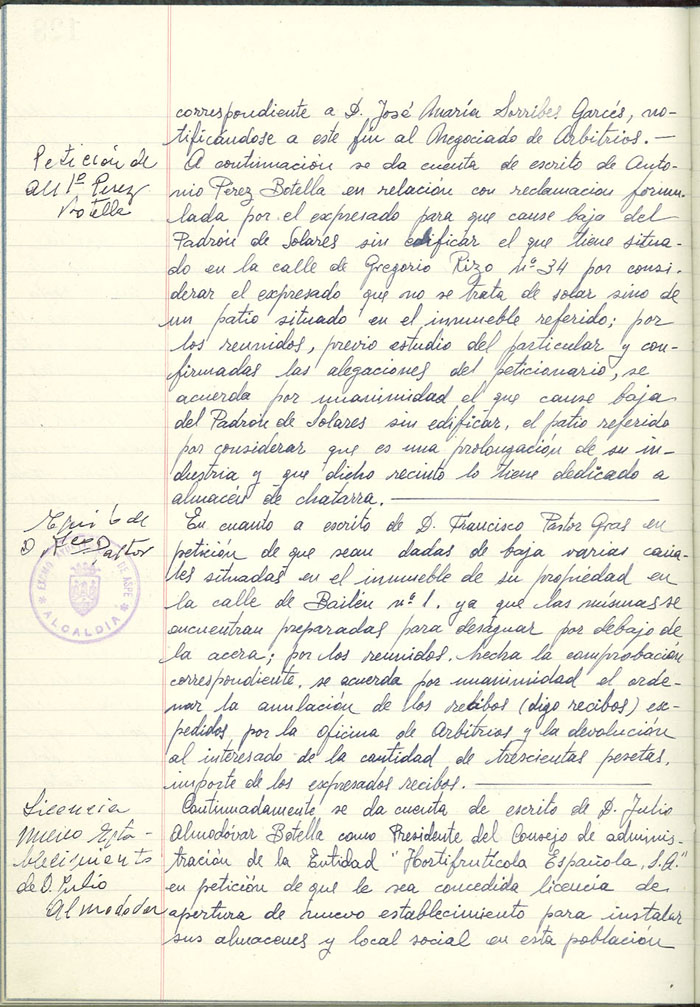 correspondiente a D. José María Sorribes Garcés, no-
tificándose a este fin al Negociado de Arbitrios.—
Petición de
Ant º Perez
Botella
A continuación se da cuenta de escrito de Anto-
nio Pérez Botella en relación con reclamación formu-
lada por el expresado para que cause baja del
Padrón de Solares sin edificar el que tiene situa-
do en la calle de Gregorio Rizo nº 34 por consi-
derar el expresado que no se trata de solar sino de
un patio situado en el inmueble referido; por
los reunidos, previo estudio del particular y con-
firmadas las alegaciones del peticionario, se
acuerda por unanimidad el que cause baja
del Padrón de Solares sin edificar, el patio referido
por considerar que es una prolongación de su in-
dustria y que dicho recinto lo tiene dedicado a
almacén de chatarra.
de
D. Fco Pastor
DE ASPE
ALCALDIA
En cuanto a escrito de D. Francisco Pastor Gras en
petición de que sean dadas de baja varias cana-
les situadas en el inmueble de su propiedad en
la calle de Bailén nº 1. ya que las mismas se
encuentran preparadas para desaguar por debajo de
la acera; por los reunidos, hecha la comprobación
correspondiente, se acuerda por unanimidad el orde-
nar la anulación de los recibos (digo recibos) ex-
pedidos por la oficina de Arbitrios y la devolución
al interesado de la cantidad de trescientas pesetas,
importe de los expresados recibos.
Licencia
nuevo Esta-
blecimiento
de D. Julio
Almodovar
Continuadamente se da cuenta de escrito de D. Julio
Almodóvar Botella como Presidente del Consejo de adminis-
tración de la Entidad "Hortifrutícola Española, S.A."
en petición de que le sea concedida licencia de
apertura de nuevo establecimiento para instalar
sus almacenes y local social en esta población